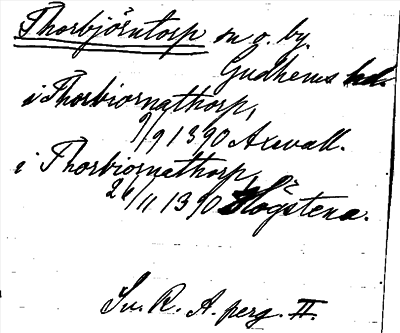 Thorbjörntorp sn o. by.
Gudhems hd.
i Thorbiornathorp,
9/9 1390 Axevall.
i Thorbiornathorp,
24/11 1390 Högstena.
Sv. R. A. perg. II.